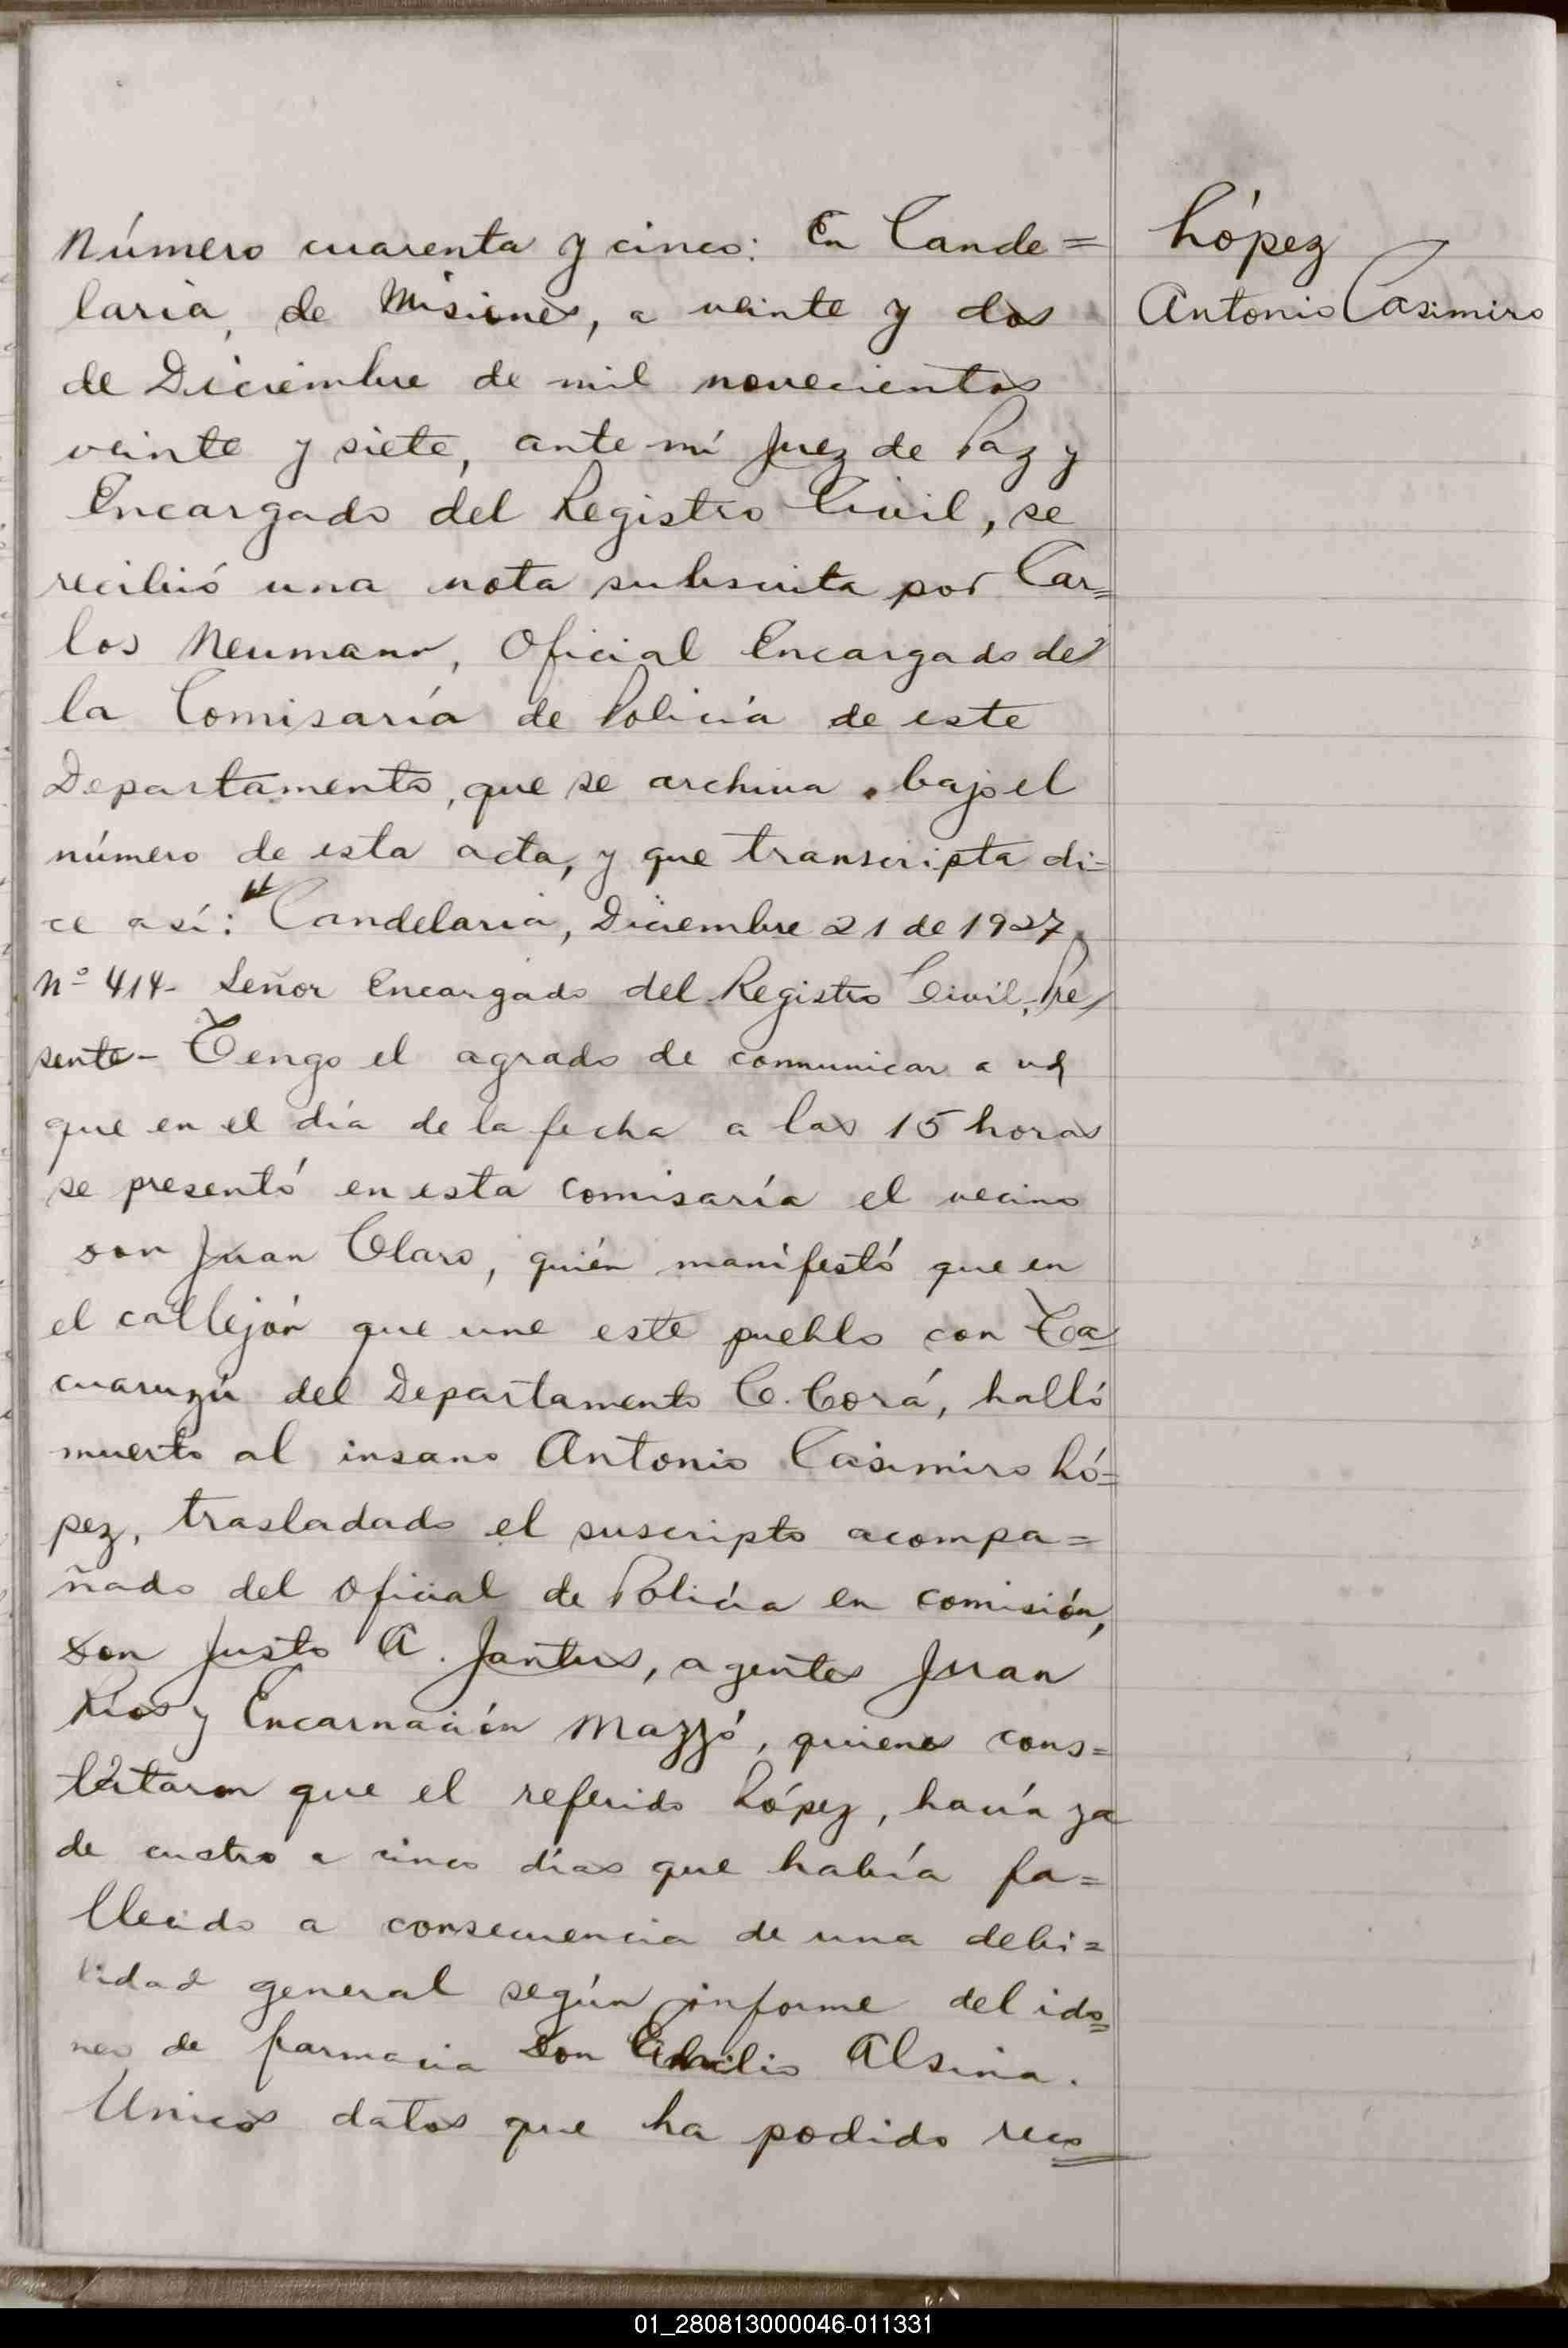 Número cuarenta y cinco: En Cande=
laria, de Misiones, a veinte y dos
de Diciembre de mil novecientos
veinte y siete, ante mí Juez de Paz y
Encargado del Registro Civil, se
recibió una nota subscrita por Car=
los Neumann, Oficial Encargado de
la Comisaría de Policía de este
Departamento, que se archiva bajo el
número de esta acta, y que transcripta di=
ce así: "Candelaria, Diciembre 21 de 1927.
Nº 414- Señor Encargado del Registro Civil, Pre
sente- Tengo el agrado de comunicar a ud
que en el día de la fecha a las 15 horas
se presentó en esta comisaría el vecino
don Juan Claro, quién manifestó que en
el callejón que une este pueblo con Ta
cuaruzú del Departamento C. Corá, halló
muerto al insano Antonio Casimiro Ló=
pez, trasladado el suscripto acompa=
ñado del Oficial de Policía en comisión,
don Justo A. Jantus, agentes Juan
Rios y Encarnación Mazzó, quienes cons=
tataron que el referido López, hacía ya
de cuatro a cinco días que había fa=
llecido a consecuencia de una debi=
lidad general según informe del ido=
neo de farmacia don Alsina.
Unicos datos que ha podido reco
López
Antonio Casimiro
01_280813000046-011331